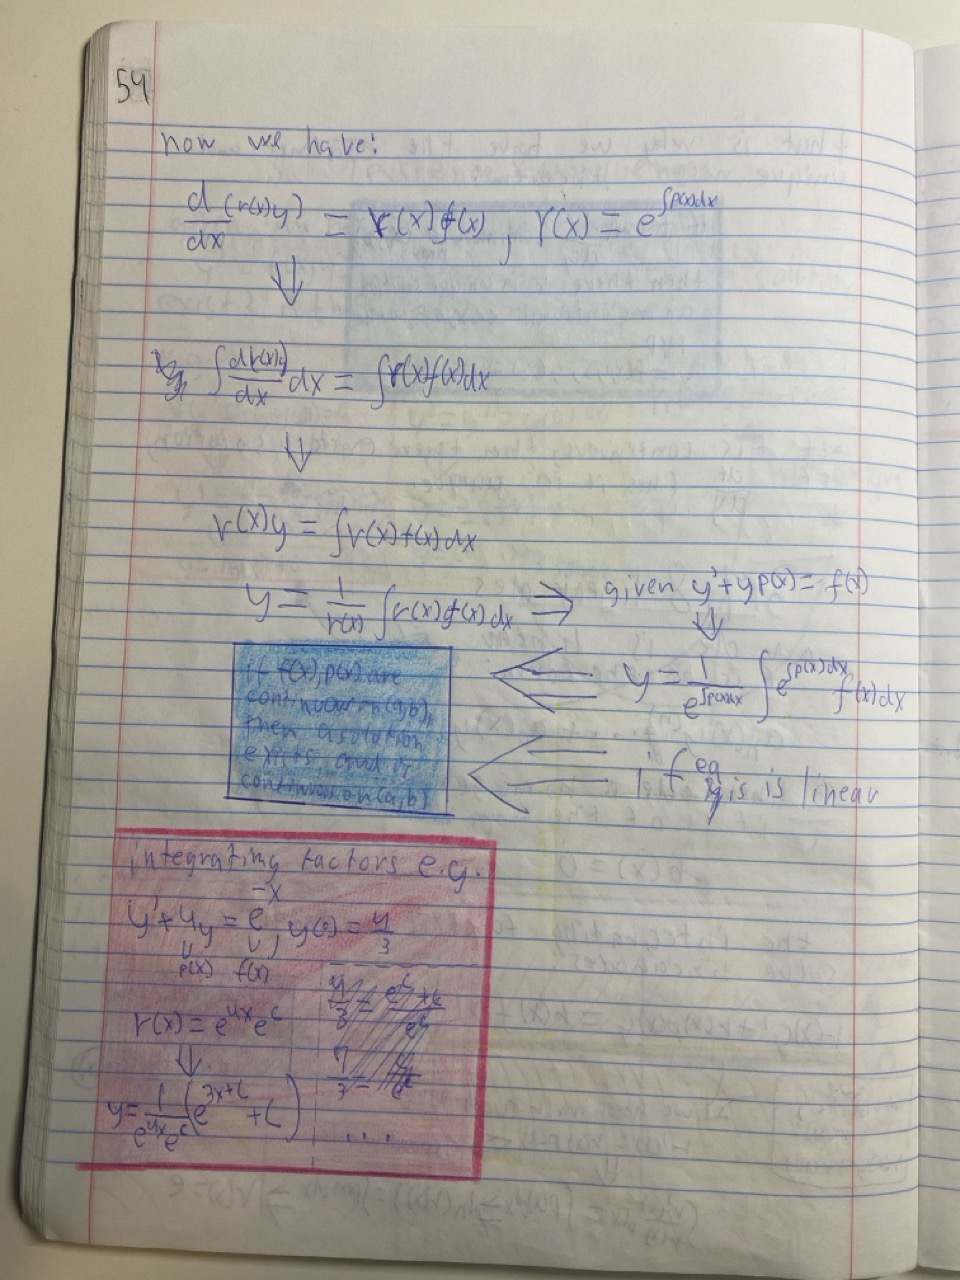 54
now we have:
d/dx (r(x)y) = r(x)f(x), r(x) = e^∫p(x)dx
⇓
∫ dr(x)y/dx dx = ∫r(x)f(x)dx
⇓
r(x)y = ∫r(x)f(x)dx
y = 1/r(x) ∫r(x)f(x)dx ⇒ given y'+yp(x) = f(x)
⇓
y = 1/e^∫p(x)dx ∫e^∫p(x)dx f(x)dx
if eq is is linear
if f(x), p(x) are
continuous on (a,b),
then a solution
exists and is
continuous on (a,b)
integrating factors e.g.
y'+4y = e^-x, y(0) = 4/3
p(x) f(x)
r(x) = e^4x e^c
⇓
y = 1/e^4x e^c (e^3x+c + C)
...